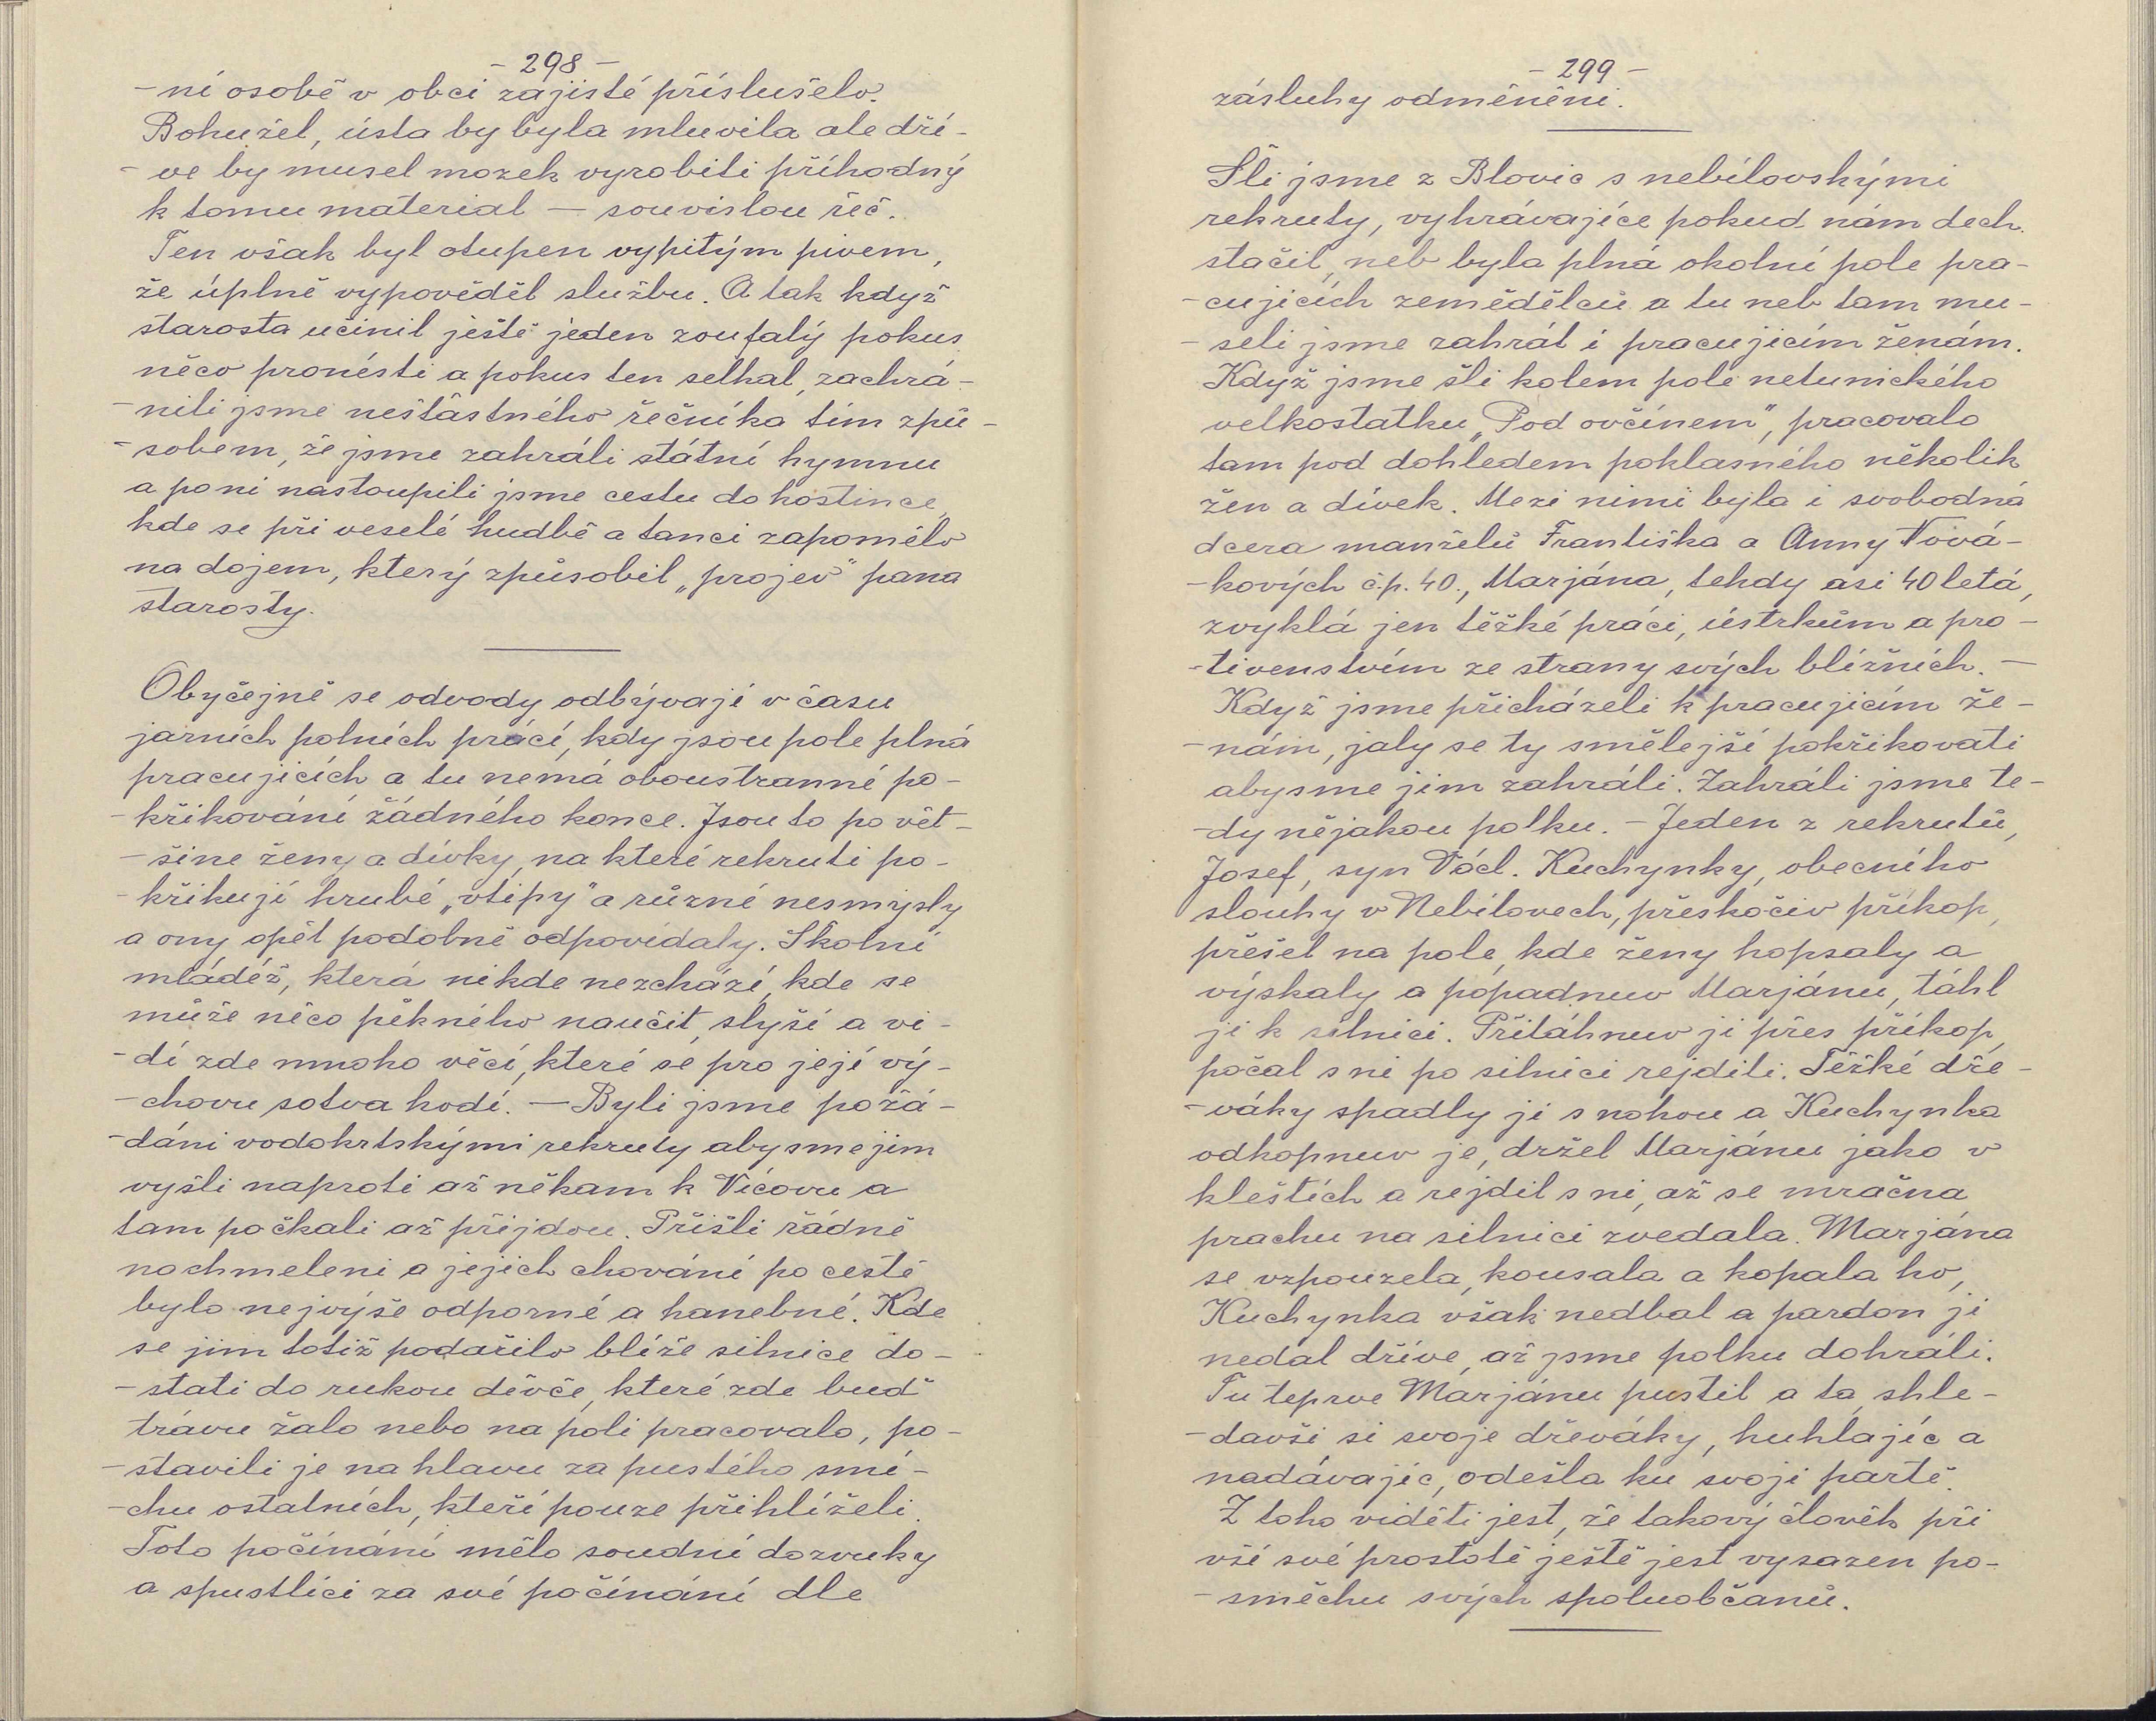 - 298 -
-ní osobě v obci zajisté příslušelo.
Bohužel, ústa by byla mluvila ale dří-
-ve by musel mozek vyrobiti příhodný
k tomu material — souvislou řeč.
Ten však byl otupen vypitým pivem,
že úplně vypověděl službu. A tak když
starosta učinil ještě jeden zoufalý pokus
něco pronésti a pokus ten selhal, zachrá-
-nili jsme nešťastného řečníka tím způ-
-sobem, že jsme zahráli státní hymnu
a poní nastoupili jsme cestu do hostince,
kde se při veselé hudbě a tanci zapomělo
na dojem, který způsobil „projev" pana
starosty.
Obyčejně se odvody odbývají v času
jarních polních prácí, kdy jsou pole plná
pracujicích a tu nemá oboustranné po-
-křikování žádného konce. Jsou to po vět-
-šine ženy a dívky, na které rekruti po-
-křikují hrubé „vtipy" a různé nesmysly
a ony opět podobně odpovídaly. Školní
mládéž, která nikde nezchází, kde se
může něco pěkného naučit, slyší a vi-
-dí zde mnoho věcí, které se pro její vý-
-chovu sotva hodí. — Byli jsme požá-
-dáni vodokrtskými rekruty abysme jim
vyšli naproti až někam k Vícovu a
tam počkali až přijdou. Přišli řádně
nachmeleni a jejich chování po cestě
bylo nejvýše odporné a hanebné. Kde
se jim totiž podařilo blíže silnice do-
-stati do rukou děvče, které zde buď
trávu žalo nebo na poli pracovalo, po-
-stavili je na hlavu za pustého smí-
-chu ostatních, kteří pouze přihlíželi.
Toto počínání mělo soudní dozvuky
a spustlíci za své počínání dle
- 299 -
zásluhy odměněni.
Šli jsme z Blovic s nebílovskými
rekruty, vyhrávajíce pokud nám dech
stačil, neb byla plná okolní pole pra-
-cujicích zemědělců a tu neb tam mu-
-seli jsme zahrát i pracujicím ženám.
Když jsme šli kolem polí netunického
velkostatku „Pod ovčínem", pracovalo
tam pod dohledem poklasného několik
žen a dívek. Mezi nimi byla i svobodná
dcera manželů Františka a Anny Nová-
-kových č.p. 40., Marjána, tehdy asi 40 letá,
zvyklá jen těžké práci, ústrkům a pro-
-tivenstvím ze strany svých bližních. —
Když jsme přicházeli k pracujicím že-
-nám, jaly se ty smělejší pokřikovati
abysme jim zahráli. Zahráli jsme te-
-dy nějakou polku. — Jeden z rekrutů,
Josef, syn Václ. Kuchynky, obecního
slouhy v Nebílovech, přeskočiv příkop,
přešel na pole, kde ženy hopsaly a
výskaly a popadnuv Marjánu, táhl
ji k silnici. Přitáhnuv ji přes příkop,
počal s ní po silnici rejditi. Těžké dře-
-váky spadly jí s nohou a Kuchynka
odkopnuv je, držel Marjánu jako v
kleštích a rejdil s ní, až se mračna
prachu na silnici zvedala. Marjána
se vzpouzela, kousala a kopala ho,
Kuchynka však nedbal a pardon jí
nedal dříve, až jsme polku dohráli.
Tu teprve Marjánu pustil a ta, shle-
-davši si svoje dřeváky, huhlajíc a
nadávajíc, odešla ku svoji partě.
Z toho viděti jest, že takový člověk při
vší své prostotě ještě jest vysazen po-
-směchu svých spoluobčanů.